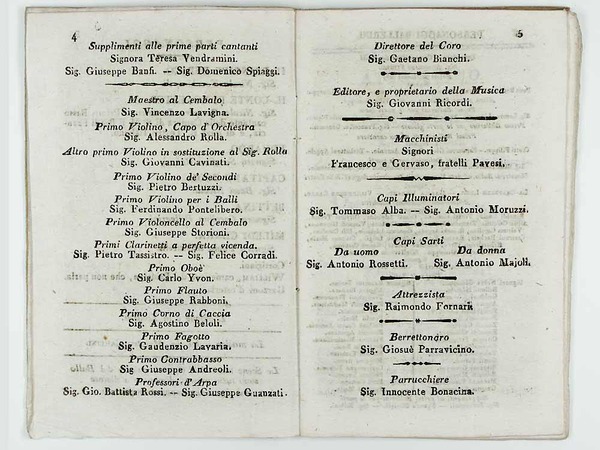 4
Supplimenti alle prime parti cantanti
Signora Teresa Vendramini.
Sig. Giuseppe Banfi. -- Sig. Domenico Spiaggi.
Maestro al Cembalo
Sig. Vincenzo Lavigna.
Primo Violino, Capo d'Orchestra
Sig. Alessandro Rolla.
Altro primo Violino in sostituzione al Sig. Rolla
Sig. Giovanni Cavinati.
Primo Violino de' Secondi
Sig. Pietro Bertuzzi.
Primo Violino per i Balli
Sig. Ferdinando Pontelibero.
Primo Violoncello al Cembalo
Sig. Giuseppe Storioni.
Primi Clarinetti a perfetta vicenda.
Sig. Pietro Tassistro. -- Sig. Felice Corradi.
Primo Oboè
Sig. Carlo Yvon.
Primo Flauto
Sig. Giuseppe Rabboni.
Primo Corno di Caccia
Sig. Agostino Beloli.
Primo Fagotto
Sig. Gaudenzio Lavaria.
Primo Contrabbasso
Sig Giuseppe Andreoli.
Professori d'Arpa
Sig. Gio. Battista Rossi. -- Sig. Giuseppe Guanzati.
5
Direttore del Coro
Sig. Gaetano Bianchi.
Editore, e proprietario della Musica
Sig. Giovanni Ricordi.
Macchinisti
Signori
Francesco e Gervaso, fratelli Pavesi.
Capi Illuminatori
Sig. Tommaso Alba. -- Sig. Antonio Moruzzi.
Capi Sarti
Da uomo Da donna
Sig. Antonio Rossetti. Sig. Antonio Majoli.
Attrezzista
Sig. Raimondo Fornari.
Berrettonaro
Sig. Giosuè Parravicino.
Parrucchiere
Sig. Innocente Bonacina.